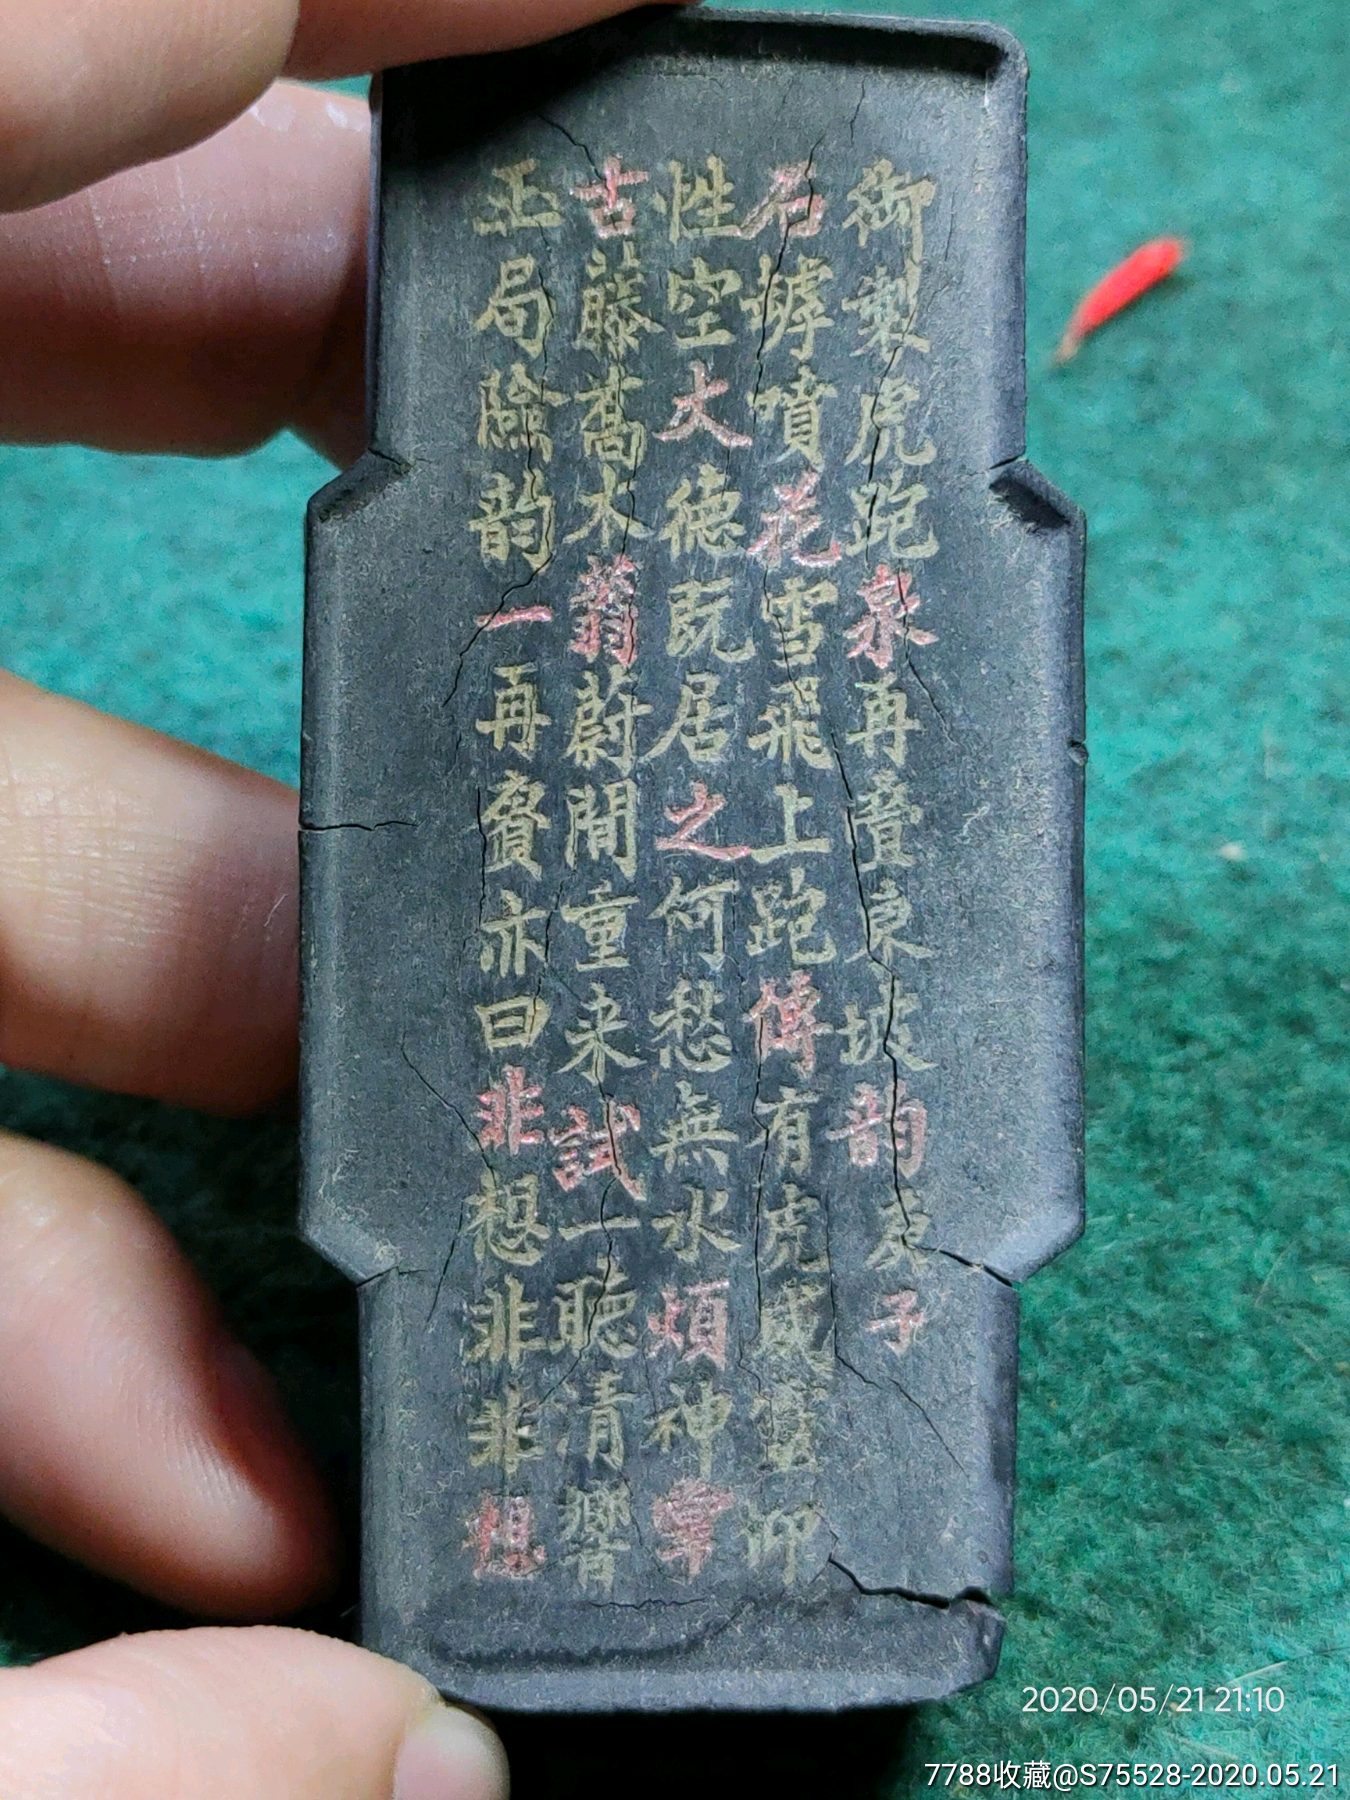 御製虎跑泉再疊東坡韵庚子
石罅噴花雪飛上跑傳有虎威靈仰
性空大德既居之何愁無水煩神寧
古藤喬木蓊蔚間重来試一聽清響
玉局險韵一再賡亦曰非想非非想
2020/05/21 21:10
7788收藏@S75528-2020.05.21